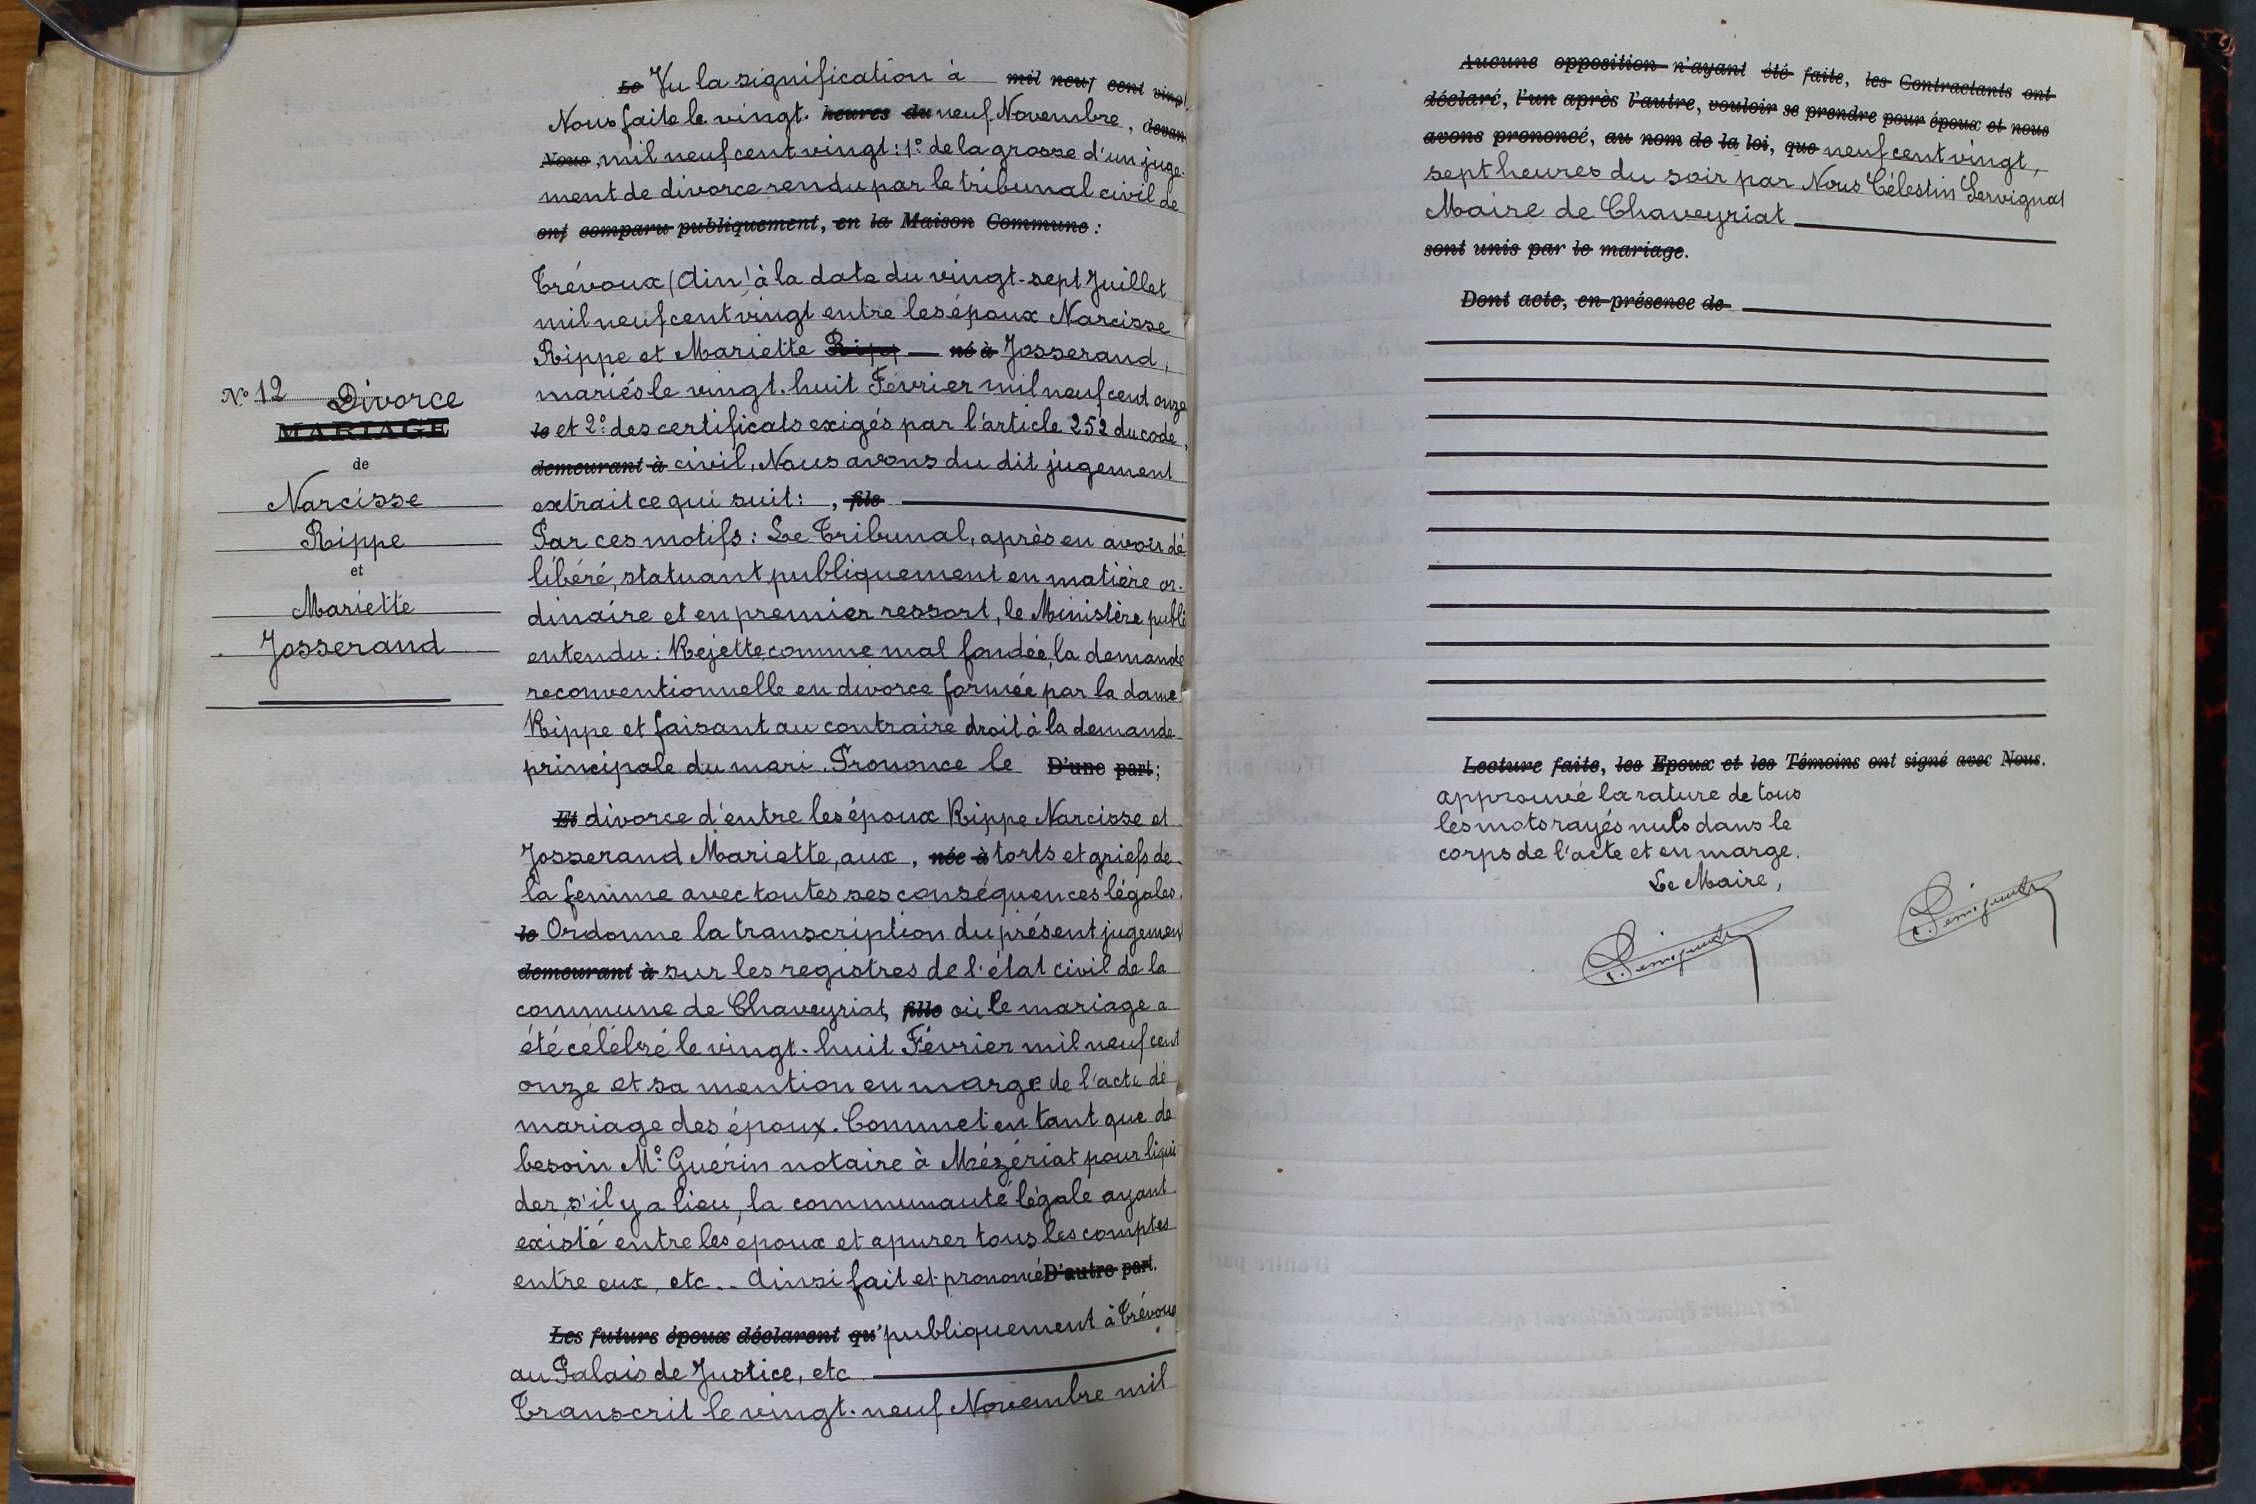 N° 12 Divorce
MARIAGE
de
Narcisse
Rippe
et
Mariette
Josserand
Le Vu la signification à mil neuf cent vingt
Nous faite le vingt- heures du neuf Novembre, devant
Nous, mil neuf cent vingt: 1° de la grosse d'un juge-
ment de divorce rendu par le tribunal civil de
ont comparu publiquement, en la Maison Commune :
Trévoux (Ain) à la date du vingt-sept Juillet
mil neuf cent vingt entre les époux Narcisse
Rippe et Mariette Ripp né à Josserand,
mariés le vingt-huit Février mil neuf cent onze
le et 2° des certificats exigés par l'article 252 du code,
demeurant à civil, Nous avons du dit jugement
extrait ce qui suit: , fils
Par ces motifs: Le Tribunal, après en avoir dé
libéré, statuant publiquement en matière or-
dinaire et en premier ressort, le Ministère public
entendu: Rejette comme mal fondée, la demande
reconventionnelle en divorce formée par la dame
Rippe et faisant au contraire droit à la demande
principale du mari. Prononce le D'une part;
Et divorce d'entre les époux Rippe Narcisse et
Josserand Mariette, aux, née à torts et griefs de
la femme avec toutes ses conséquences légales.
le Ordonne la transcription du présent jugement
demeurant à sur les registres de l'état civil de la
commune de Chaveyriat, fille où le mariage a
été célébré le vingt-huit Février mil neuf cent
onze et sa mention en marge de l'acte de
mariage des époux. Commet en tant que de
besoin M° Guérin notaire à Mézériat pour liqui
der, s'il y a lieu, la communauté légale ayant
existé entre les époux et apurer tous les comptes
entre eux, etc.. Ainsi fait et prononcé D'autre part.
Les futurs époux déclarent qu' publiquement à Trévoux
au Palais de Justice, etc
Transcrit le vingt-neuf Novembre mil
Aucune opposition n'ayant été faite, les Contractants ont
déclaré, l'un après l'autre, vouloir se prendre pour époux et nous
avons prononcé, au nom de la loi, que neuf cent vingt,
sept heures du soir par Nous Célestin Servignat
Maire de Chaveyriat
sont unis par le mariage.
Dont acte, en présence de
Lecture faite, les Epoux et les Témoins ont signé avec Nous.
approuvé la rature de tous
les mots rayés nuls dans le
corps de l'acte et en marge.
Le Maire,